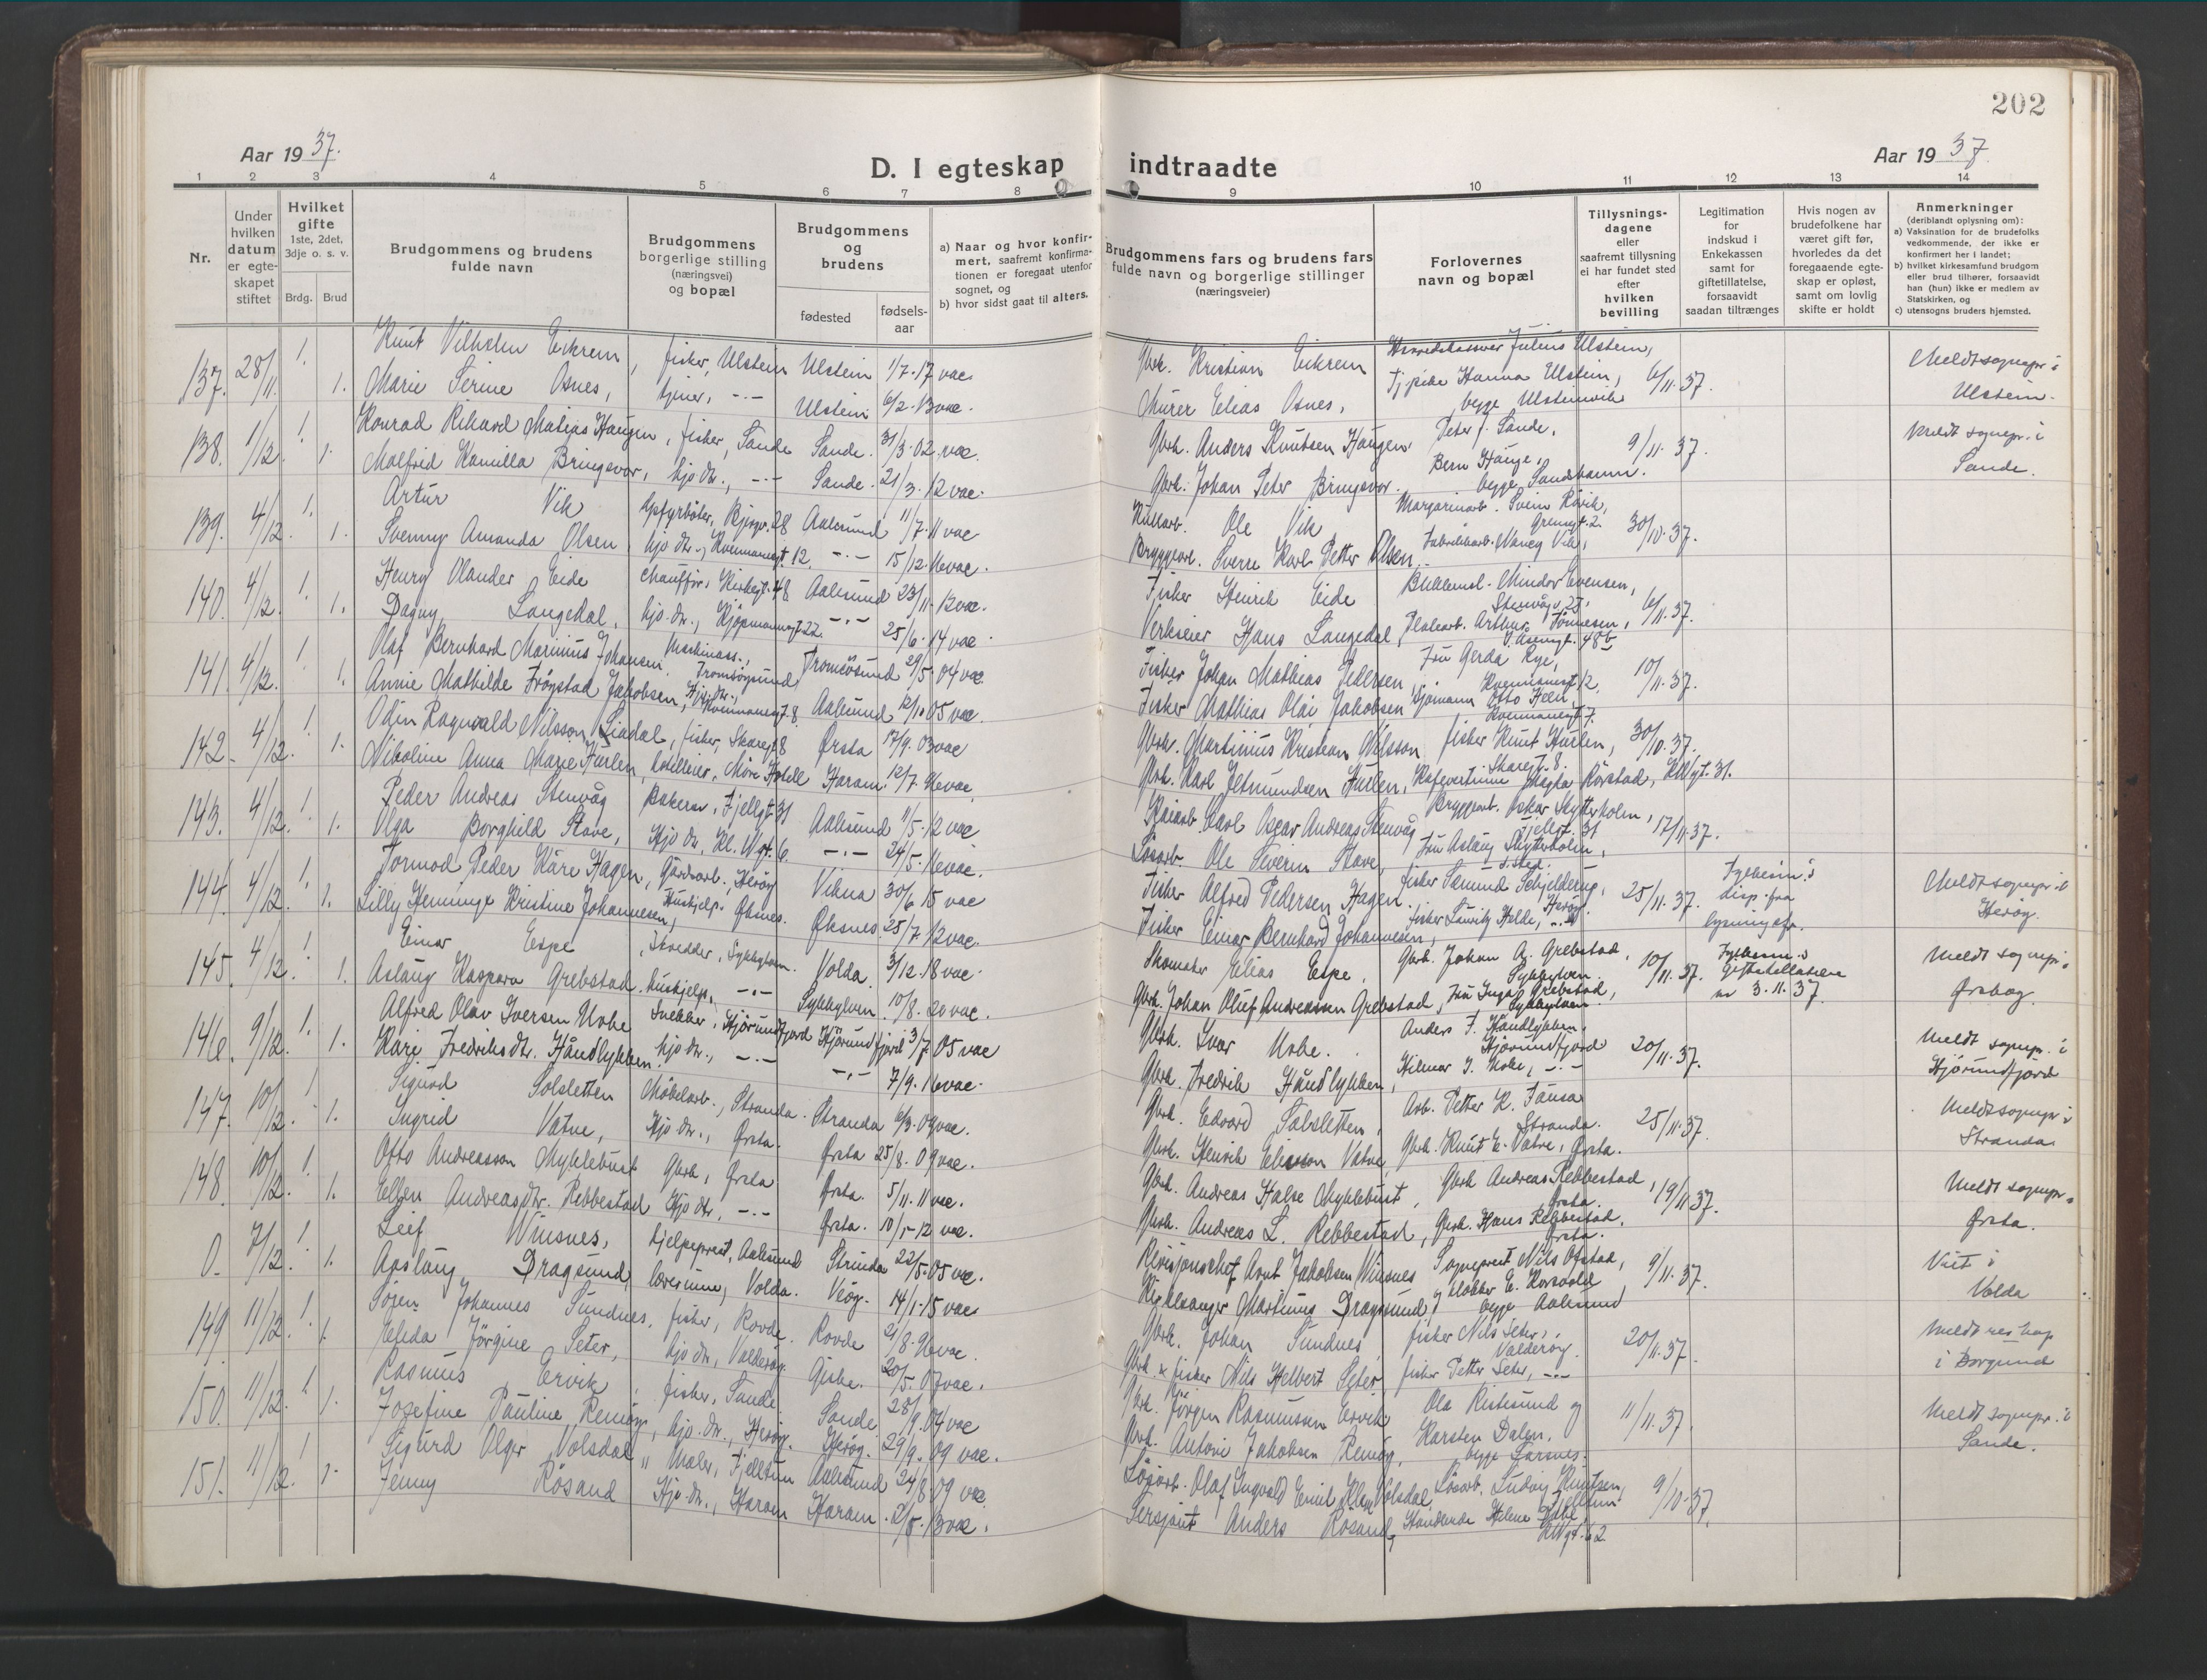 202
Aar 19 37.
D. I egteskap indtraadte
Aar 19 37
1 2 3 4 5 6 7 8 9 10 11 12 13 14
Nr.
Under hvilken datum er egte-skapet stiftet
Hvilket gifte 1ste, 2det, 3dje o. s. v.
Brdg. Brud
Brudgommens og brudens fulde navn
Brudgommens borgerlige stilling (næringsvei) og bopæl
Brudgommens og brudens
fødested
fødsels-aar
a) Naar og hvor konfir-mert, saafremt konfirma-tionen er foregaat utenfor sognet, og
b) hvor sidst gaat til alters.
Brudgommens fars og brudens fars fulde navn og borgerlige stillinger (næringsveier)
Forlovernes navn og bopæl
Tillysnings-dagene eller saafremt tillysning ei har fundet sted efter hvilken bevilling
Legitimation for indskud i Enkekassen samt for giftetillatelse, forsaavidt saadan tiltrænges
Hvis nogen av brudefolkene har været gift før, hvorledes da det foregaaende egte-skap er opløst, samt om lovlig skifte er holdt
Anmerkninger (deriblandt oplysning om):
a) Vaksination for de brudefolks vedkommende, der ikke er konfirmert her i landet;
b) hvilket kirkesamfund brudgom eller brud tilhører, forsaavidt han (hun) ikke er medlem av Statskirken, og
c) utensogns bruders hjemsted.
137. 28/11. 1. Knut Vilhelm Eikrem, fisker, Ulstein Ulstein 1/7.17 vac. Gbrk. Kristian Eikrem Julius Ulstein, 6/11.37. Meldt sognepr. i
1. Marie Serine Osnes, tjener, -"- Ulstein 6/2.13 vac. Murer Elias Osnes, Hanna Ulstein, begge Ulsteinvik Ulstein.
138. 1/12. 1. Konrad Rikard Matias Haugen, fisker, Sande Sande. 31/3.02 vac. Gbrk. Anders Knutsen Haugen. Peter J. Sande, 9/11.37. Meldt sognepr. i
1. Malfrid Kamilla Bringsvor, hjo. dtr., -"- Sande. 21/3.12 vac. Gbrk. Johan Peter Bringsvor. Bern Hauge, begge Sandshamn. Sande.
139. 4/12. 1. Artur Vik Aalesund 11/7.11 vac Ole Vik Margarinarb. Svein Rövik, 30/10.37.
1. Svenny Amanda Olsen, hjo. dtr., 12. -"- 15/12.16 vac. Bryggearb. Sverre Karl Petter Olsen, Fabrikkarb. Nancy Vik,
140. 4/12. 1. Henry Olander Eide Chauffør, Kirkegt. 48 Aalesund 23/11.12 vac. Fisker Henrik Eide Mindor Evensen, 6/11.37.
1. Dagny Langedal, hjo. dtr., Kjøpmannsgt. 22. -"- 25/6.14 vac Verkseier Hans Langedal, Arthur Tönnesen,
141. 4/12. 1. Olaf Bernhard Marinius Johansen. Maskinass., Tromsøysund Tromsøsund 29/5.04 vac. Fisker Johan Mathias Pedersen, Fru Gerda Rye, 10/11.37.
1. Annie Mathilde Frøystad Jakobsen, Hjo. dtr., Aalesund 12/10.05 vac. Fisker Mathias Olai Jakobsen Sjømann Otto
142. 4/12. 1. Odin Ragnvald Nilsson Liadal, fisker, Skaregt. 8 Ørsta 17/9.03 vac Gbrk. Martinius Kristian Nilsson fisker Knut Hurlen, Skaregt. 8. 30/10.37.
1. Nikoline Anna Marie Hurlen, Møre Hotell Haram. 12/7.96 vac. Gbrk. Karl Jetmundsen Hurlen, Magda Rörstad, KWgt. 31.
143. 4/12. 1. Peder Andreas Stenvåg Bakersv., Fjellgt. 31 Aalesund 11/5.12 vac Kaiarb. Carl Oscar Andreas Stenvåg Bryggearb. Oskar Skytterholm, Fjellgt. 31 17/11.37.
1. Olga Borghild Stave, Hjo. dtr., Kl. Wgt. 6. -"- 24/5.16 vac. Løsarb. Ole Severin Stave, Fru Aslaug Skytterholm,
144. 4/12. 1. Tormod Peder Kåre Hagen, Gårdsarb., Herøy Vikna 30/6.15 vac Fisker Alfred Pedersen Hagen. fisker Samund Schjelderup, Herøy. 25/11.37. disp. fra Meldt sognepr. i
1. Lilly Henninge Kristine Johannesen, Hushjelp. Øksnes. Øksnes. 25/7.12 vac. Fisker Einar Bernhard Johannesen, lysning Herøy.
145. 4/12. 1. Einar Espe, Skredder, Sykkylven. Volda. 3/12.18 vac. Skomaker Elias Espe, Gbrk. Johan A. Grebstad, Sykkylven. 10/11.37. Giftetillatelse Meldt sognepr. i
1. Aslaug Kaspara Grebstad. hushjelp, -"- Sykkylven. 10/8.20 vac. Gbrk. Johan Oluf Andreassen Grebstad, Fru Inga Grebstad, Sykkylven. av 3.11.37. Ørskog.
146. 9/12. 1. Alfred Olav Iversen Urke Snekker, Hjørundfjord Hjørundfjord 3/7.05 vac Gbrk. Ivar Urke. Anders F. Håndlykken, Hjørundfjord 20/11.37. Meldt sognepr. i
1. Kari Fredriksdtr. Håndlykken. hjo. dtr., -"- -"- 7/9.16 vac. Gbrk. Fredrik Håndlykken, Hilmar I. Urke, -"- Hjørundfjord
147. 10/12. 1. Sigurd Solsletten Møbelarb., Stranda. Stranda 6/3.09 vac. Gbrk. Edvard Solsletten, Arb. Petter K. Fausa Stranda. 25/11.37. Meldt sognepr. i
1. Ingrid Vatne, Hjo. dtr., Ørsta. Ørsta 25/8.09 vac. Gbrk. Henrik Eliasson Vatne, Gbrk. Knut E. Vatne, Ørsta. Stranda.
148. 10/12. 1. Otto Andreasson Myklebust Gbrk, Ørsta Ørsta. 5/11.11 vac. Gbrk. Andreas Halse Myklebust, Gbrk Andreas Rebbestad, Ørsta. 19/11.37. Meldt sognepr. i
1. Ellen Andreasdtr. Rebbestad Hjo dtr., -"- Ørsta. 10/1-12 vac. Gbrk. Andreas L. Rebbestad, Gbrk. Hans Rebbestad, Ørsta. Ørsta.
0. 7/12. 1. Leif Winsnes, hjelpeprest, Aalesund Strinda 22/5.05 vac. Revisjonschef Arnt Jakobsen Winsnes Sogneprest Nils Ofstad, 9/11.37. Viet i
1. Aaslaug Dragsund, lærerinne, Volda. Vigøy. 14/1.15 vac Kirkesanger Martinus Dragsund, klokker E. Korsvold begge Aalesund Volda
149 11/12. 1. Søren Johannes Sundnes, fisker, Rovde. Rovde 21/8.96 vac. Gbrk. Johan Sundnes, fisker Nils Seter, Valderøy. 20/11.37. Meldt res. kap
1. Jörgine Seter, hjo dtr., Valderøy. Giske. 20/5.07 vac. Gbrk. & fisker Nils Helbert Seter, fisker Petter Seter, -"- i Borgund
150. 11/12. 1. Rasmus Ervik, fisker, Sande. Sande. 28/9.04 vac Gbrk. Jörgen Rasmussen Ervik Ola Ristesund og 11/11.37. Meldt sognepr. i
1. Josefine Pauline Remøy, hjo. dtr., Herøy. Herøy. 29/9.09 vac. Gbrk. Antoni Jakobsen Remøy, Karsten Dalen, begge Larsnes. Sande.
151. 11/12. 1. Sigurd Olger Volsdal, Maler, Fjelltun Aalesund 24/8 09 vac. Løsarb. Olaf Ingvald Emil Volsdal, Løsarb. Ludvig Knutsen, Fjelltun 9/10.37.
1. Jenny Rösand Hjo. dtr., Haram Haram. 2/8.13 vac. Sersjant Anders Rösand, Helene KWgt. 62